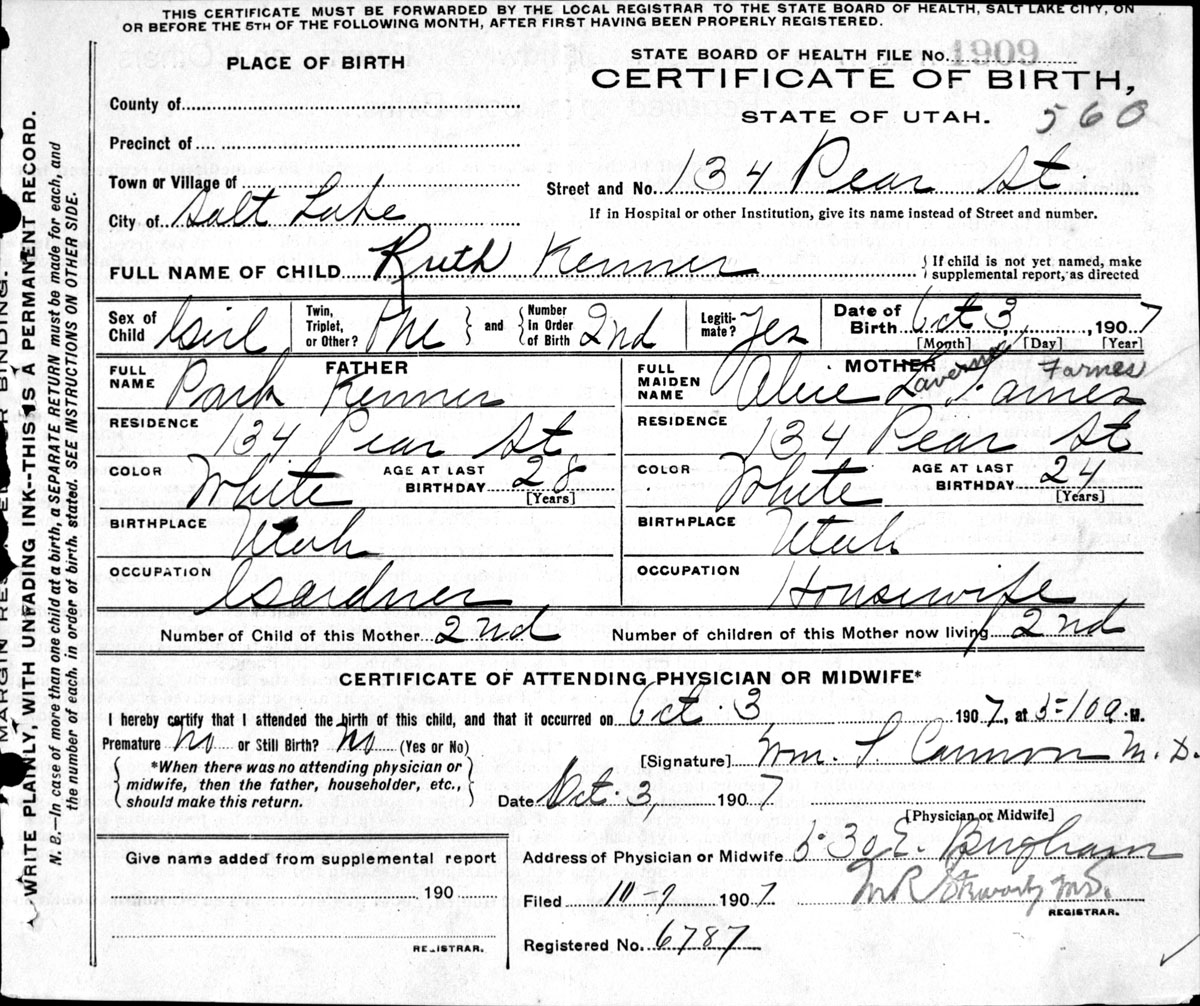 THIS CERTIFICATE MUST BE FORWARDED BY THE LOCAL REGISTRAR TO THE STATE BOARD OF HEALTH, SALT LAKE CITY, ON
OR BEFORE THE 5TH OF THE FOLLOWING MONTH, AFTER FIRST HAVING BEEN PROPERLY REGISTERED.
PLACE OF BIRTH
STATE BOARD OF HEALTH FILE No. 1909
CERTIFICATE OF BIRTH,
STATE OF UTAH. 560
County of
Precinct of
Town or Village of
Street and No. 134 Pear St.
City of Salt Lake
If in Hospital or other Institution, give its name instead of Street and number.
FULL NAME OF CHILD Ruth Kenner
{If child is not yet named, make
supplemental report, as directed
Sex of Child Girl
Twin, Triplet, or Other? One } and { Number in Order of Birth 2nd
Legitimate? Yes
Date of Birth Oct 3, 1907
[Month] [Day] [Year]
FATHER
FULL NAME Park Kenner
RESIDENCE 134 Pear St
COLOR White AGE AT LAST BIRTHDAY 28
[Years]
BIRTHPLACE Utah
OCCUPATION Gardner
MOTHER
FULL MAIDEN NAME Alice Laverna Farnes Farnes
RESIDENCE 134 Pear St
COLOR White AGE AT LAST BIRTHDAY 24
[Years]
BIRTHPLACE Utah
OCCUPATION Housewife
Number of Child of this Mother 2nd Number of children of this Mother now living 2nd
CERTIFICATE OF ATTENDING PHYSICIAN OR MIDWIFE*
I hereby certify that I attended the birth of this child, and that it occurred on Oct. 3, 1907, at 5-10 a. M.
Premature No or Still Birth? No (Yes or No)
[Signature] Wm. T. Cannon M.D.
{ *When there was no attending physician or
midwife, then the father, householder, etc.,
should make this return. }
Date Oct. 3, 1907
[Physician or Midwife]
Give name added from supplemental report
190
REGISTRAR.
Address of Physician or Midwife 5-30 E. Brigham
Filed 10-9 1907
M.D.
REGISTRAR.
Registered No. 6787
MARGIN RESERVED FOR BINDING.
WRITE PLAINLY, WITH UNFADING INK--THIS IS A PERMANENT RECORD.
N. B.—In case of more than one child at a birth, a SEPARATE RETURN must be made for each, and
the number of each, in order of birth, stated. SEE INSTRUCTIONS ON OTHER SIDE.